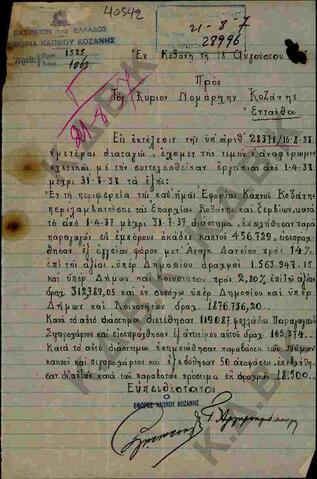 40542
21-8-7
28996
ΒΑΣΙΛΕΙΟΝ ΤΗΣ ΕΛΛΑΔΟΣ
ΕΦΟΡΙΑ ΚΑΠΝΟΥ ΚΟΖΑΝΗΣ
Ἐν Κοζάνη τῇ 18 Αὐγούστου
Πρὸς
Τὸν Κύριον Νομάρχην Κοζάνης
Ἐνταῦθα
Εἰς ἐκτέλεσιν τῆς ὑπ' ἀριθ. 28371/16-8-38
ὑμετέρας διαταγῆς, ἔχομεν τὴν τιμὴν ν' ἀναφέρωμεν
σχετικῶς μὲ τὴν συντελεσθεῖσαν ἐργασίαν ἀπὸ 1-4-38
μέχρι 31-8-38 τὰ ἑξῆς:
Ἐν τῇ περιφερείᾳ τῆς καθ' ἡμᾶς Ἐφορίας Καπνοῦ Κοζάνης
περιλαμβανούσης τὰς Ἐπαρχίας Κοζάνης καὶ Σερβίων, κατὰ
τὸ ἀπὸ 1-4-37 μέχρι 31-7-37 διάστημα, ἐπωλήθησαν παρὰ
παραγωγῶν εἰς ἐμπόρους ὀκάδες καπνοῦ 436.729, εἰσεπρά-
χθησαν ἐξ ἐγγείου φόρου μετ' Ἀναγκ. Δανείου πρὸς 14%
ἐπὶ τῆς ἀξίας ὑπὲρ Δημοσίου δραχμαὶ 1.563.947,15
καὶ ὑπὲρ Δήμων καὶ Κοινοτήτων πρὸς 2,80% ἐπὶ τῆς ἀξίας
δραχ. 312.789,05 καὶ ἐν συνόλῳ ὑπὲρ Δημοσίου καὶ ὑπὲρ
Δήμων καὶ Κοινοτήτων δραχ. 1876.736,20.
Κατὰ τὸ αὐτὸ διάστημα διετέθησαν 119087 φυλλάδια Παραγωγῆς
Σιγαροχάρτου καὶ εἰσεπράχθησαν ἐξ ἀντιτίμου αὐτοῦ δραχ. 165.374.
Κατὰ τὸ αὐτὸ διάστημα ἐσημειώθησαν παραβάσεις τῶν Νόμων
καπνοῦ καὶ σιγαροχάρτου καὶ ἐξεδόθησαν 50 ἀποφάσεις ἐπεβλήθη-
σαν δι' αὐτῶν κατὰ τῶν παραβατῶν πρόστιμα ἐκ δραχμῶν 18.500.
Εὐπειθέστατος
ΕΦΟΡΟΣ ΚΑΠΝΟΥ ΚΟΖΑΝΗΣ